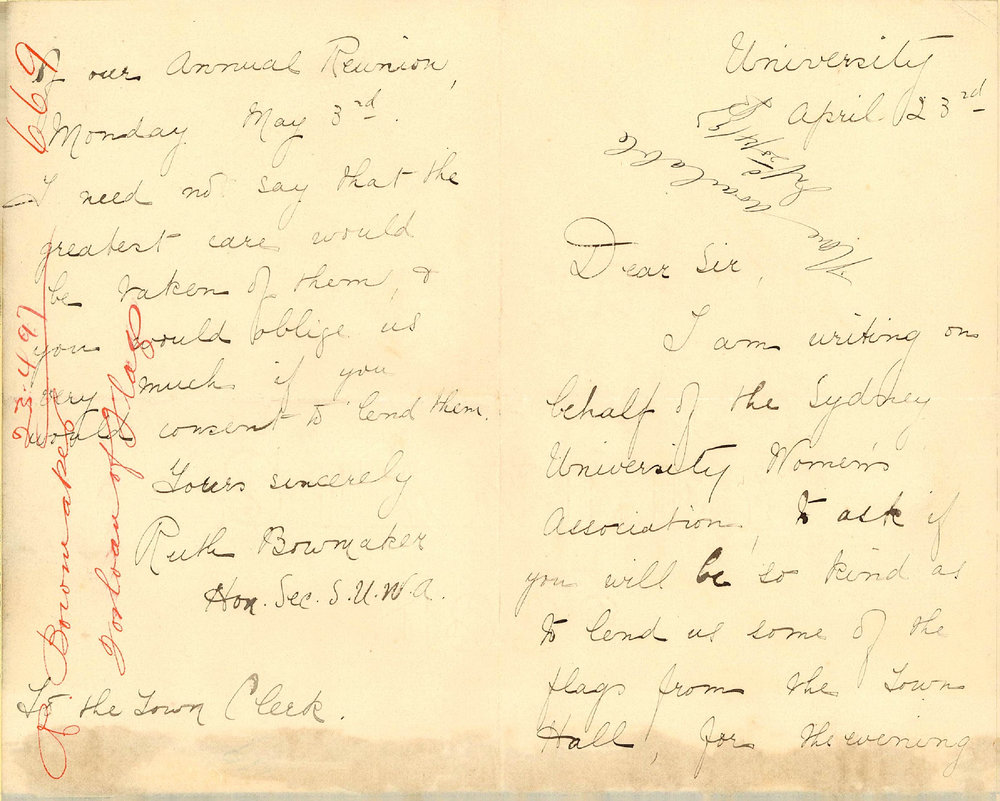 University
April 23rd
Dear Sir,
I am writing on
behalf of the Sydney
University Women's
Association, to ask if
you will be so kind as
to lend us some of the
flags from the Town
Hall, for the evening
of our Annual Reunion,
Monday May 3rd.
I need not say that the
greatest care would
be taken of them, &
you would oblige us
very much if you
would consent to lend them.
Yours sincerely
Ruth Bowmaker
Hon. Sec. S.U.W.A.
To the Town Clerk.
669
23.4.97
Bowmaker
for loan of Flags
None available